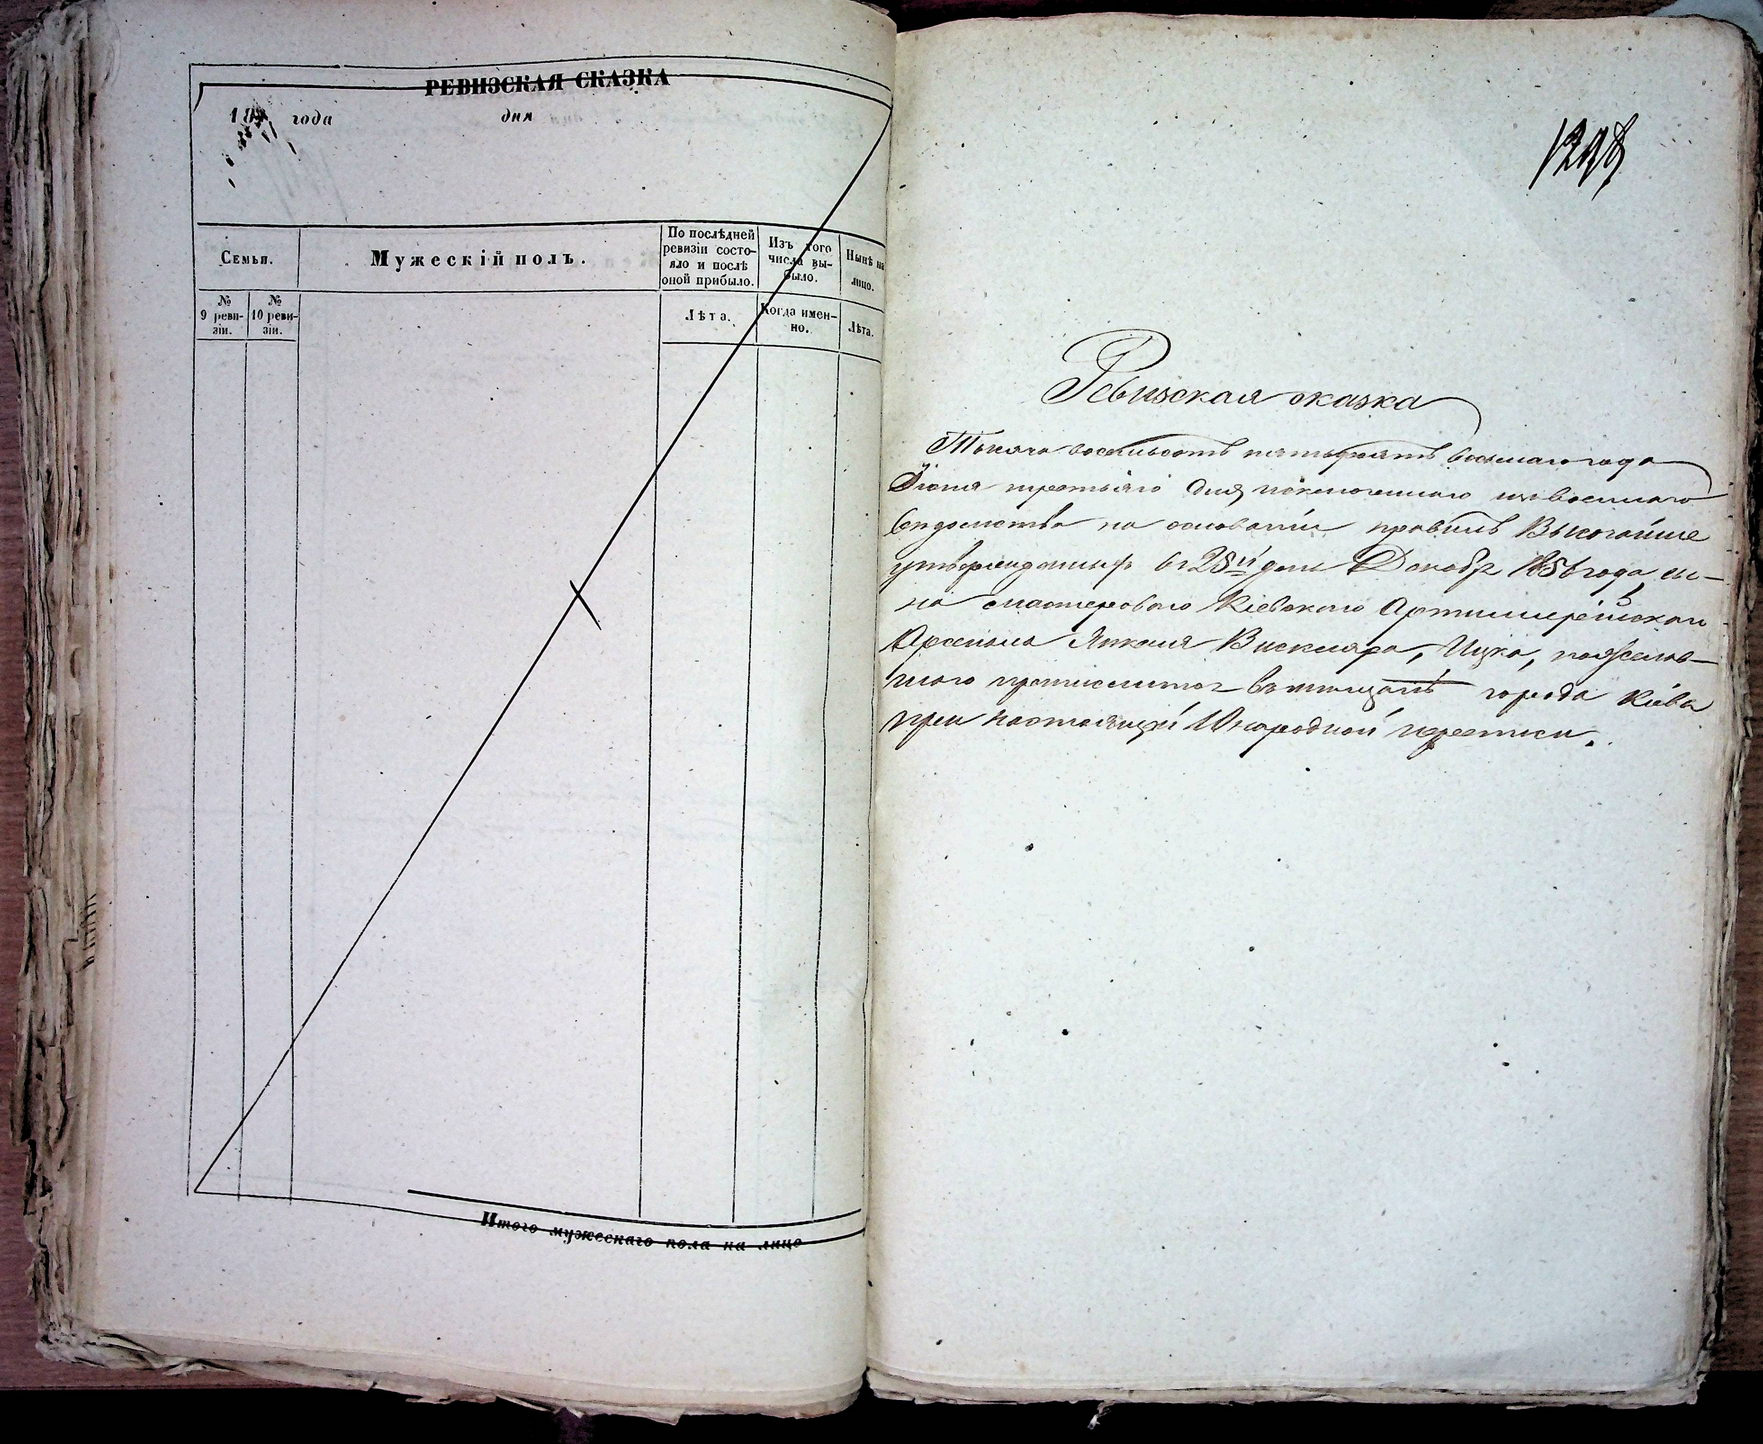 РЕВИЗСКАЯ СКАЗКА
18 года дня
Семьи.
Мужескій полъ.
По послѣдней ревизіи состо-
яло и послѣ
оной прибыло.
Изъ того
числа вы-
было.
Нынѣ на
лицо.
№
9 реви-
зіи.
№
10 реви-
зіи.
Лѣта.
Когда имен-
но.
Лѣта.
Итого мужескаго пола на лицо
Ревизская сказка
Тысяча восемьсотъ пятьдесятъ восьмаго года
Іюня третьяго дня, изключеннаго изъ военнаго
вѣдомства на основаніи правилъ Высочайше
утвержденныхъ въ 25й день Декабря 1856 года, сы-
на мастероваго Кіевскаго Артиллерійскаго
Арсенала Янкеля, Ицка,
города Кіева
при настоящей 10 народной переписи.